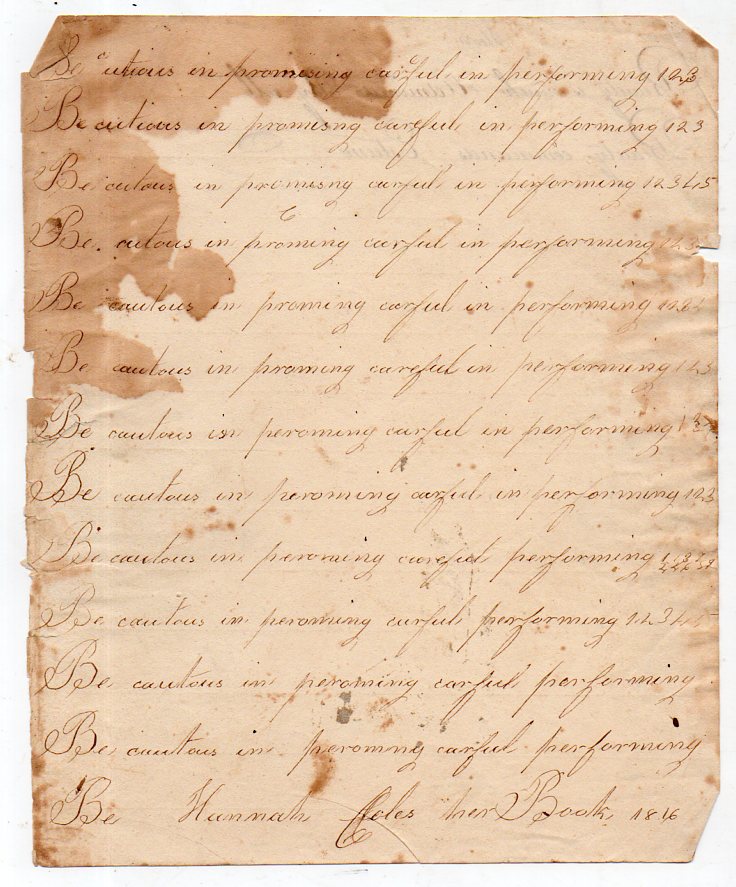 Be cutious in promising carful in performing 123
Be cutious in promisng careful in performing 123
Be cutous in promisng carful in performing 12345
Be cutous in proming carful in performing 123
Be cautous in proming carful in performing 123
Be cautous in proming careful in performing 123
Be cautous in peroming carful in performing
Be cautous in peroming carful in performing 123
Be cautous in peroming careful performing
Be cautous in peroming carful performing 12345
Be cautous in peroming carful performing
Be cautous in peromng carful performing
Be Hannah Coles her Book 1816